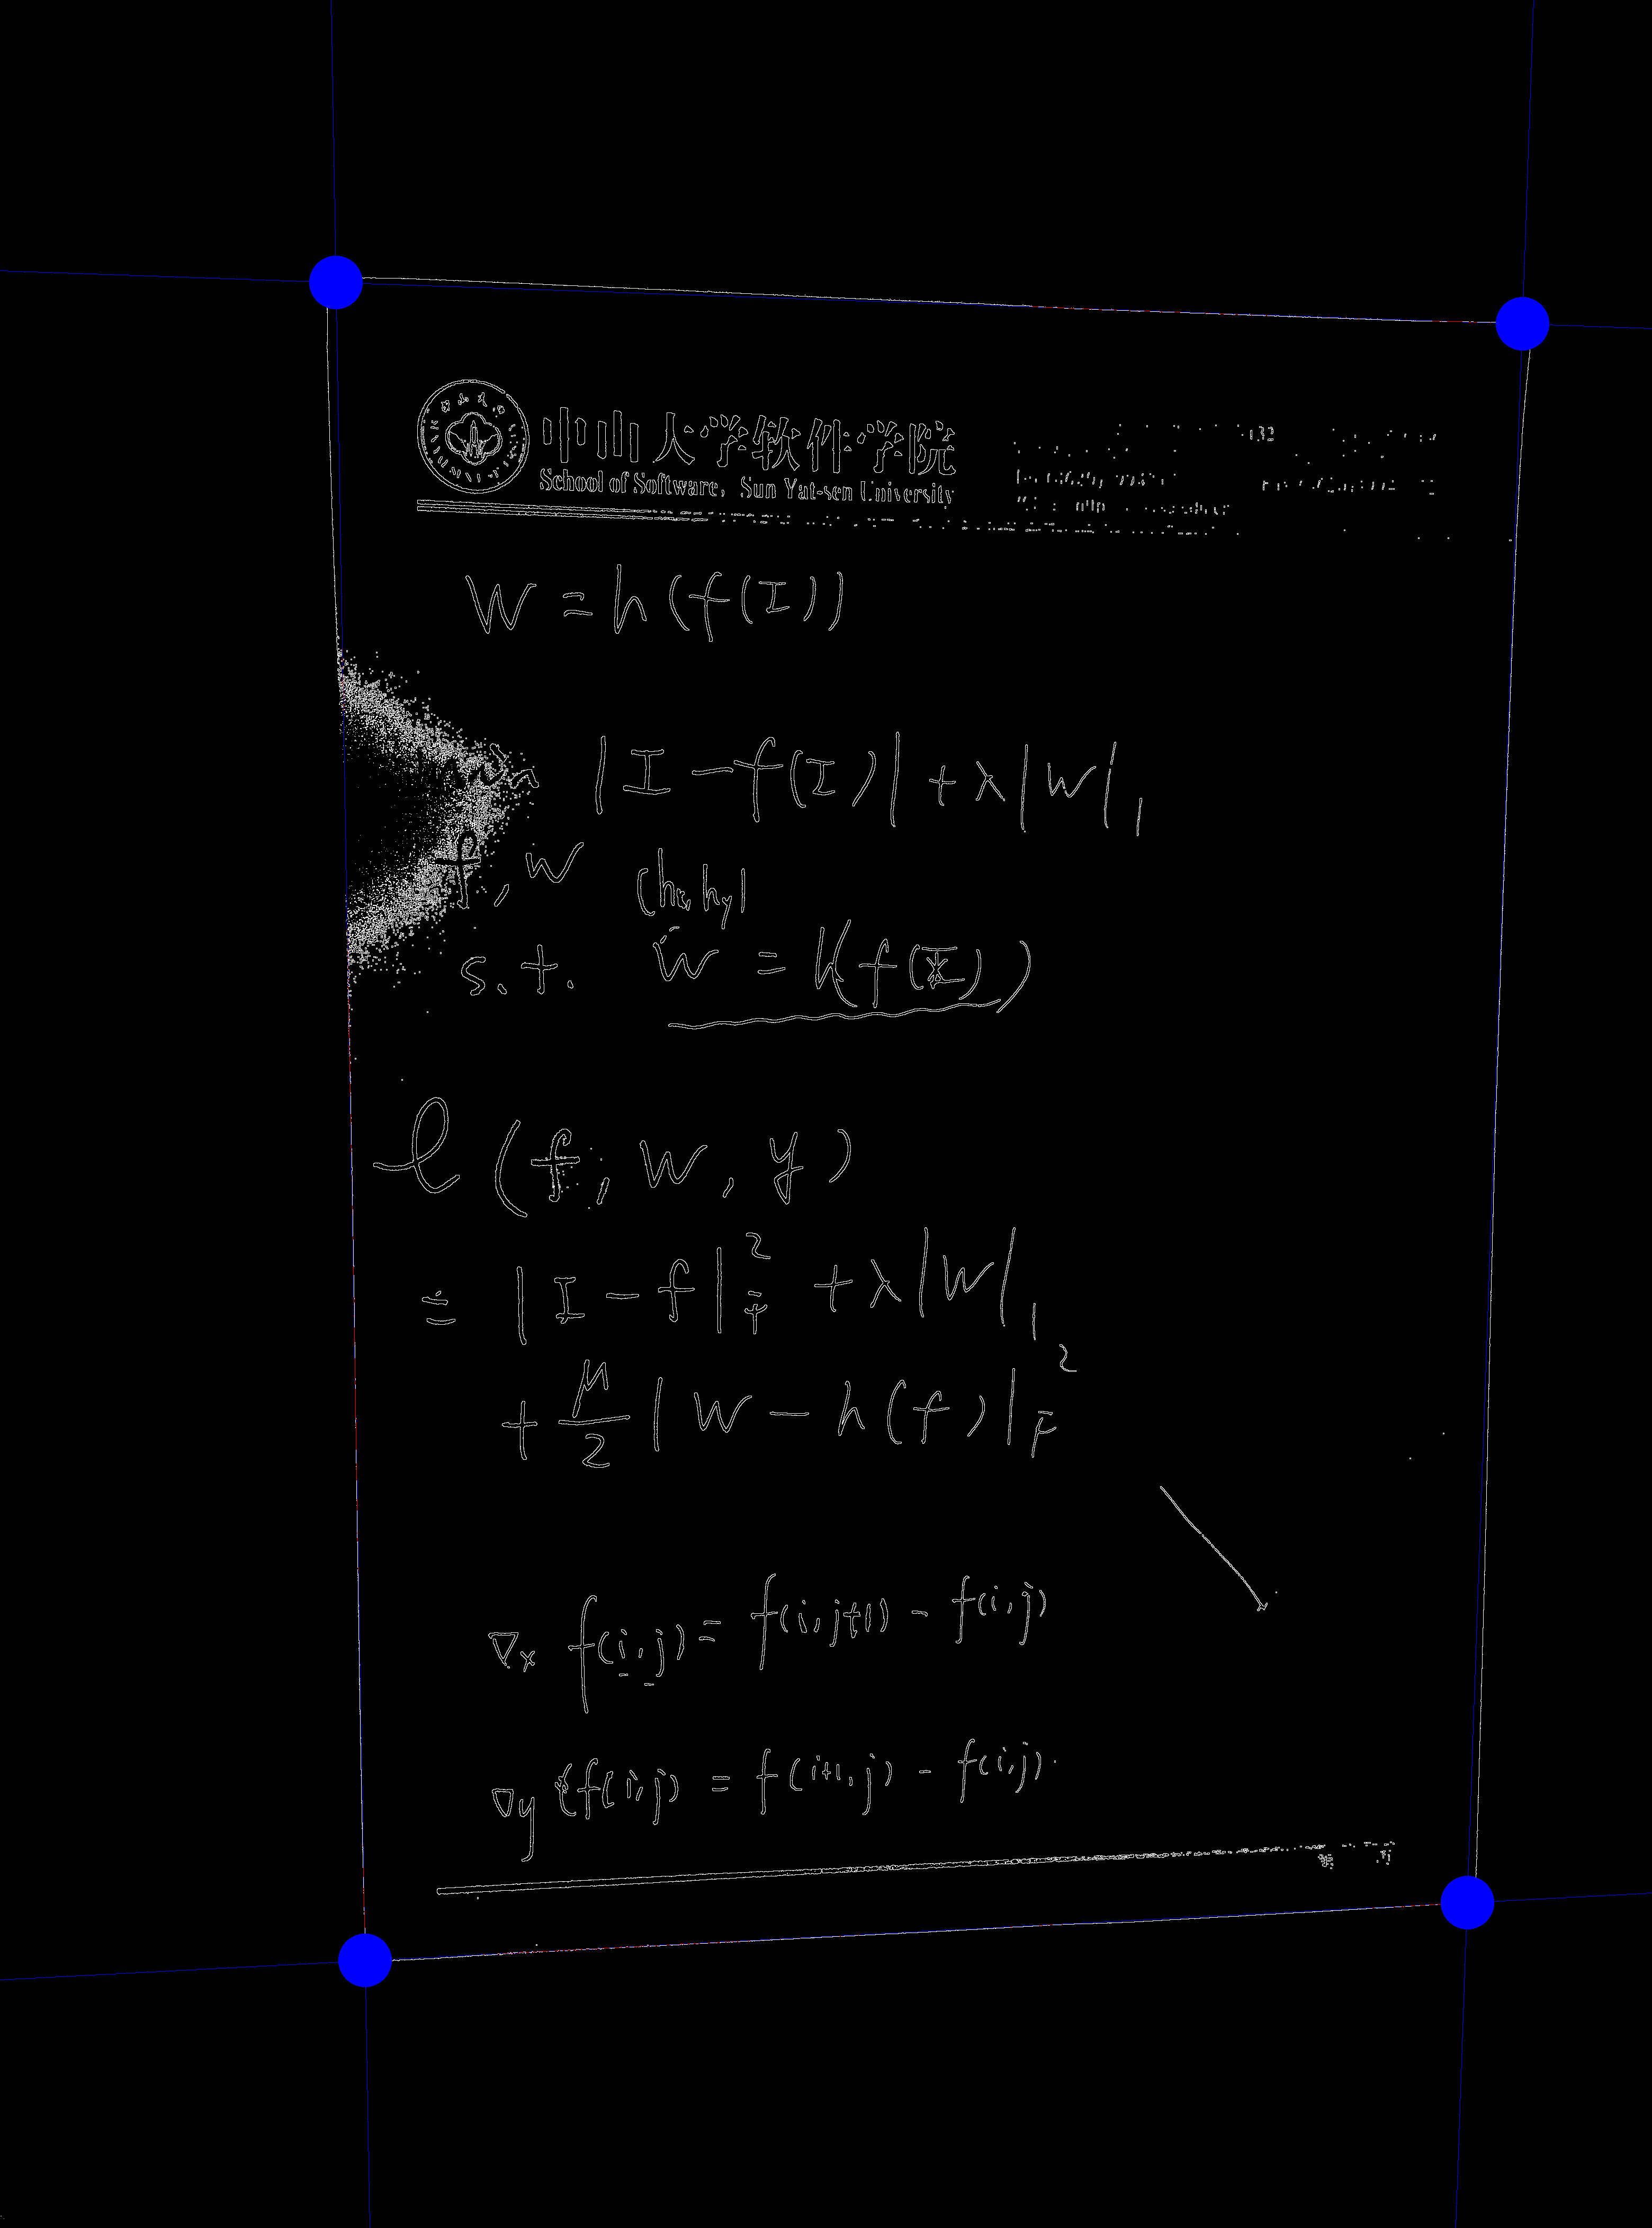 中山大学软件学院
School of Software, Sun Yat-sen University
W = h(f(I))
min |I - f(I)| + λ|W|₁
f, w (hx, hy)
s.t. W = h(f(I))
ℓ(f, W, y)
= |I - f|²_F + λ|W|₁
+ μ/2 |W - h(f)|²_F
∇x f(i,j) = f(i,j+1) - f(i,j)
∇y f(i,j) = f(i+1,j) - f(i,j)